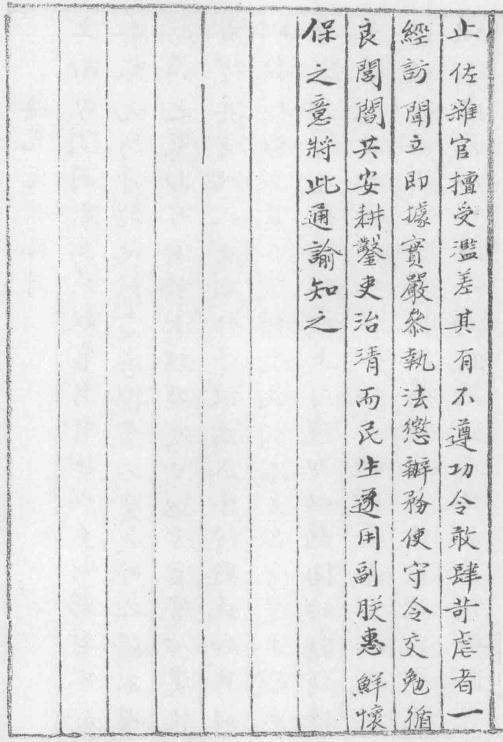 止佐雜官擅受濫差其有不遵功令敢肆苛虐者一
經訪聞立即據實嚴叅執法懲辦務使守令交勉循
良閭閻共安耕鑿吏治清而民生遂用副朕惠鮮懷
保之意將此通諭知之